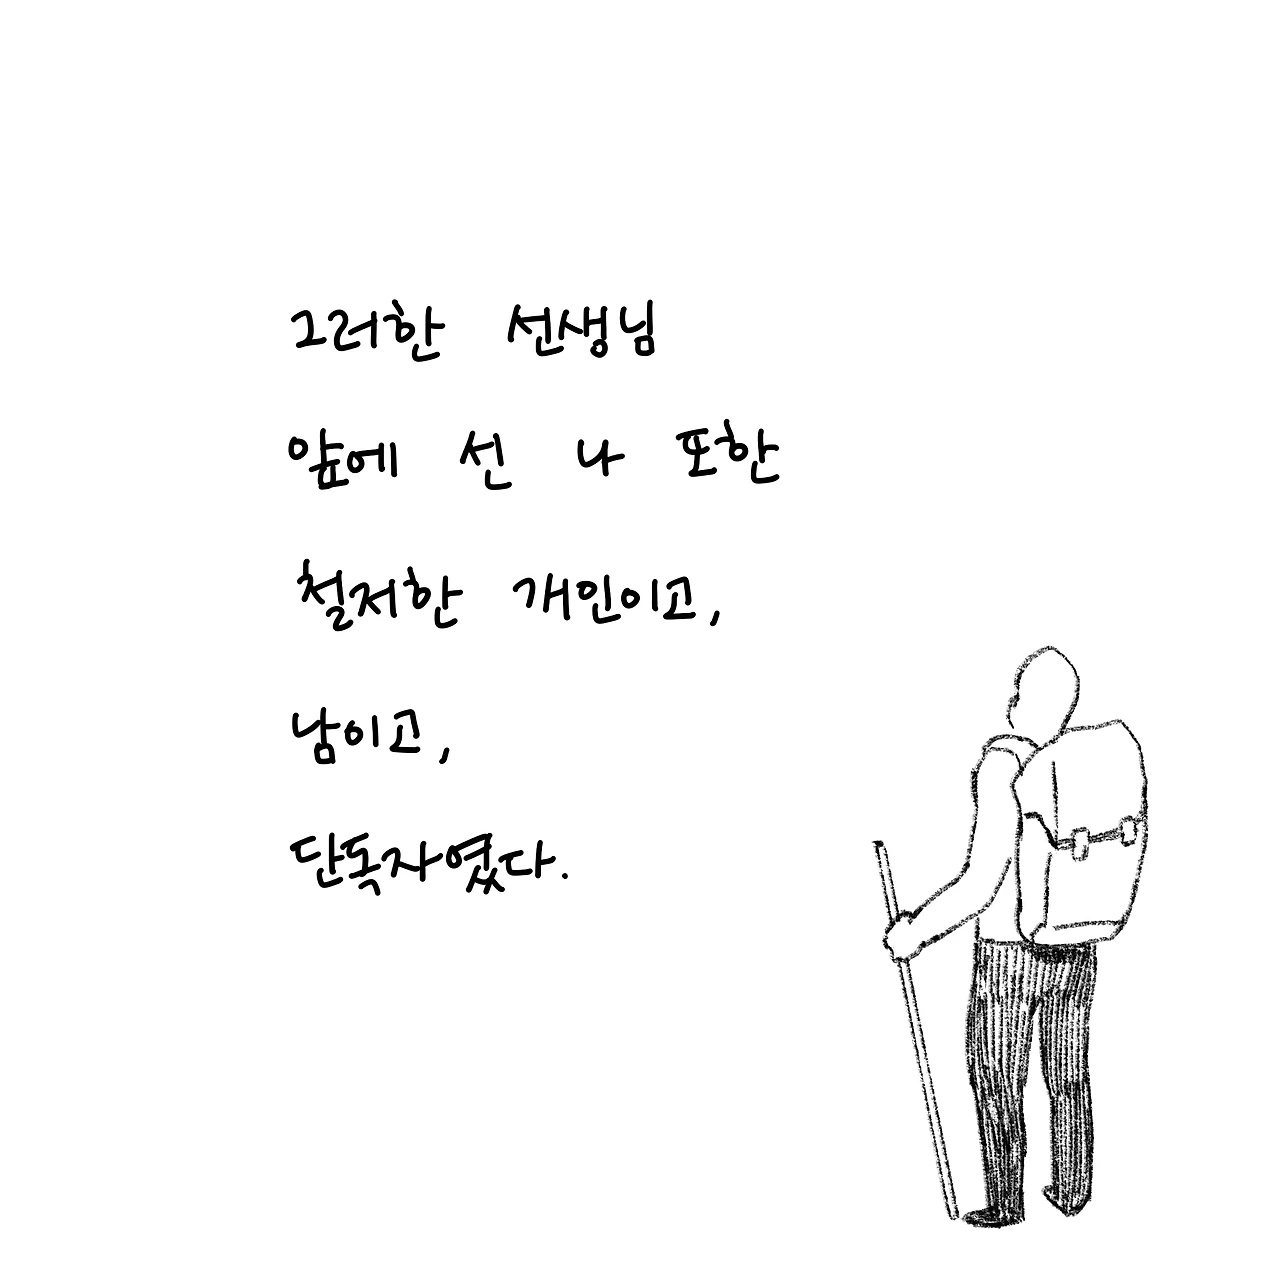 그러한 선생님
앞에 선 나 또한
철저한 개인이고,
남이고,
단독자였다.